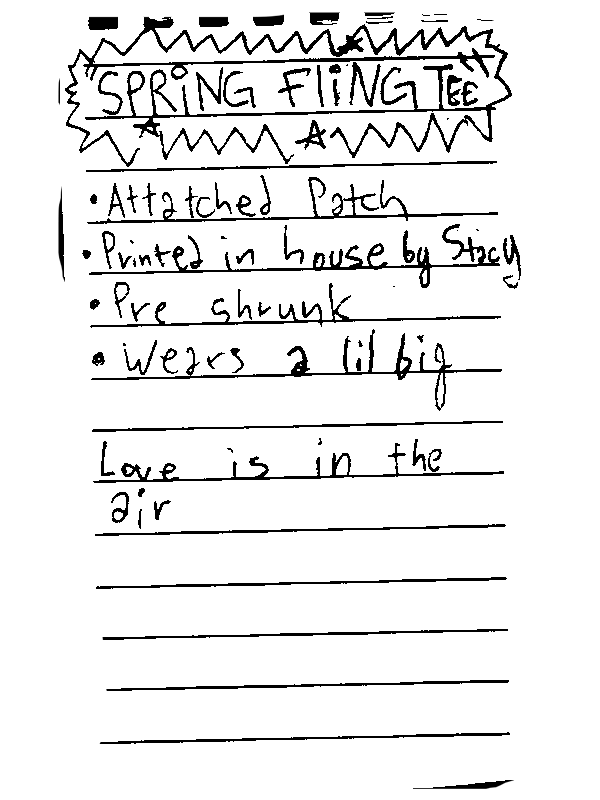 "SPRiNG FliNG TEE"
• Attatched Patch
• Printed in house by Stacy
• Pre shrunk
• Wears a lil big
Love is in the
air